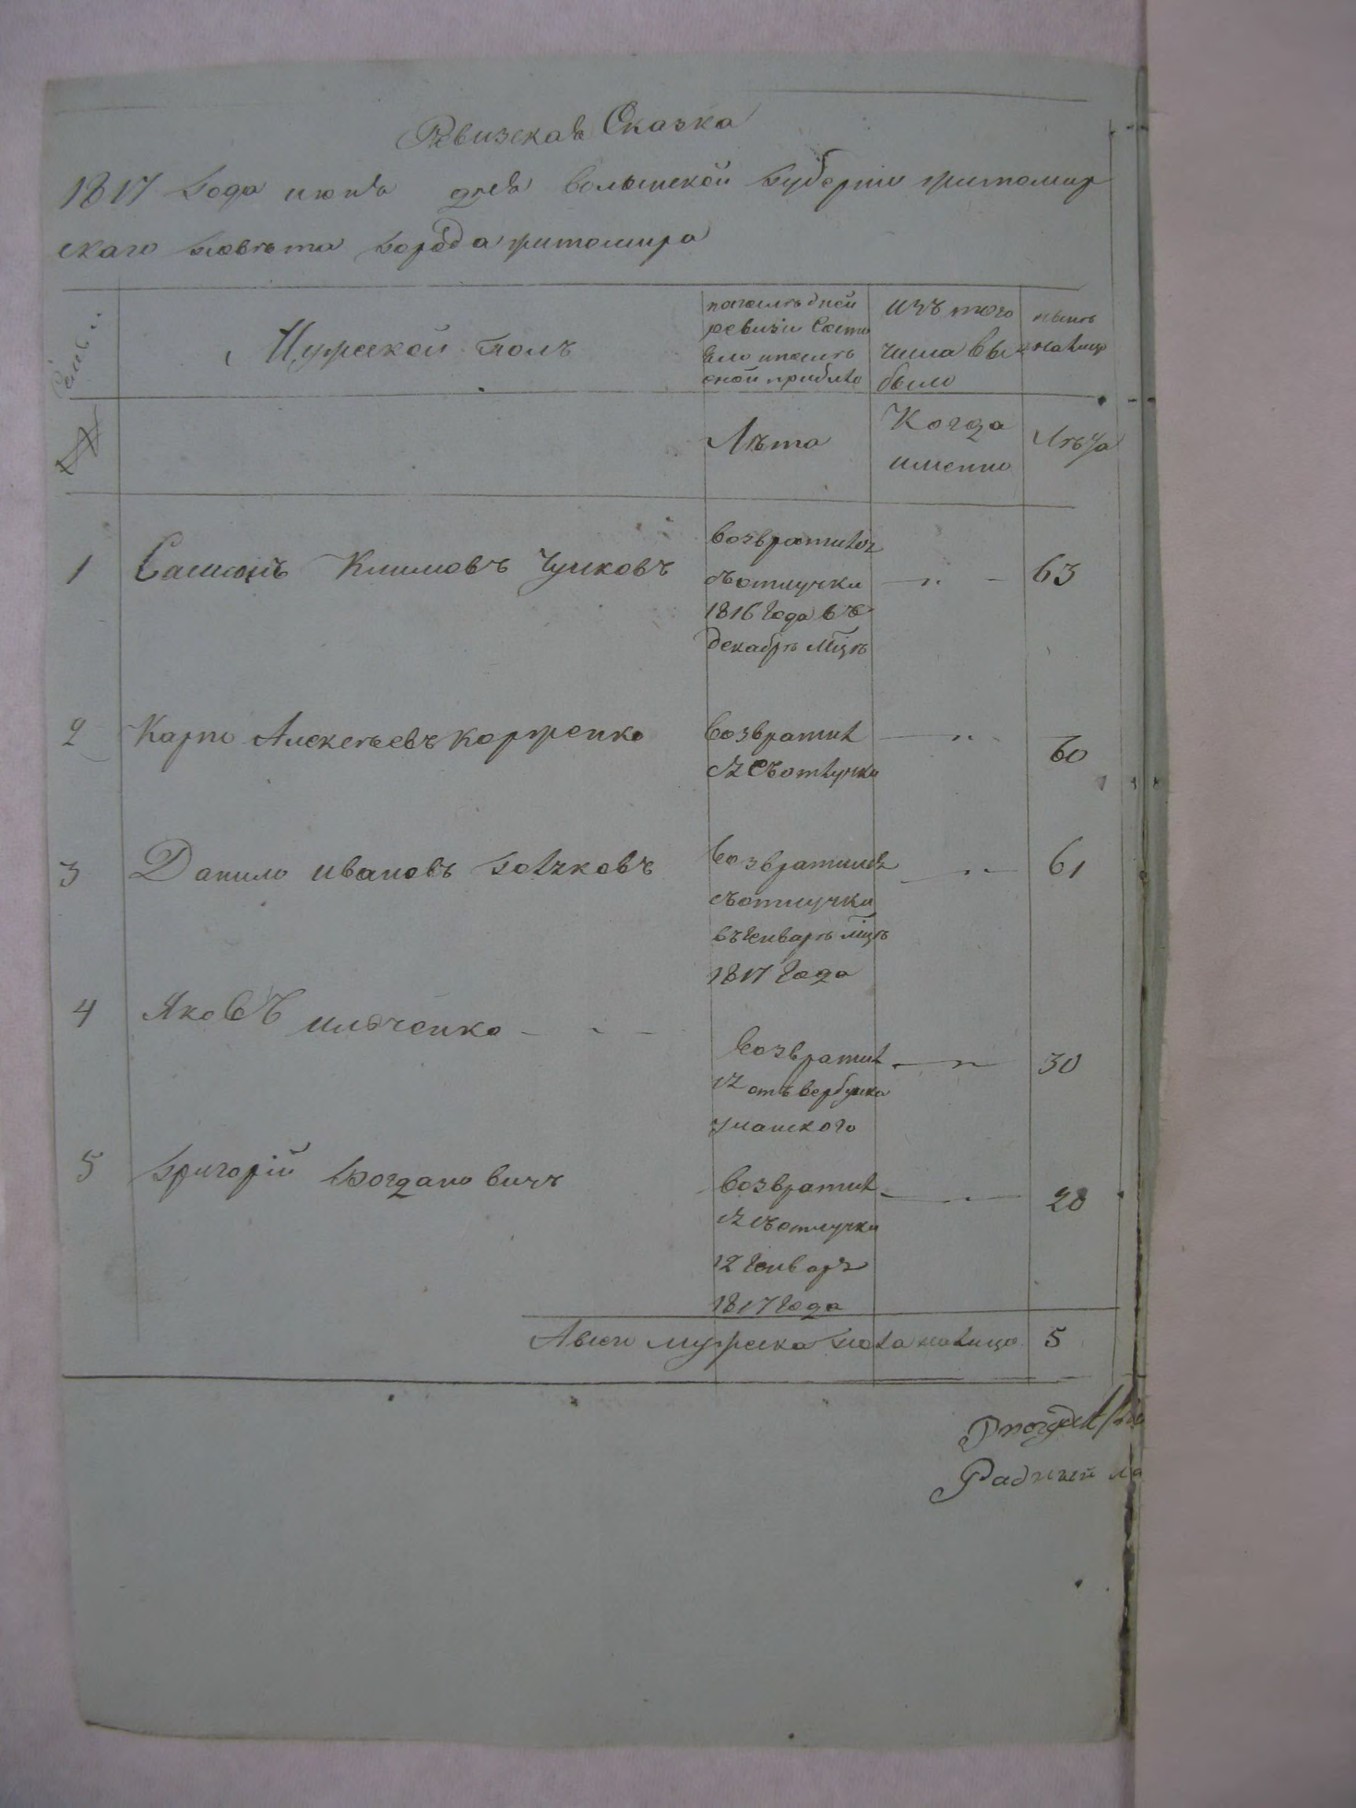 Ревизская Сказка
1817 Года июня дня волынской Губернии житомир
скаго повѣта города житомира
Семьи
Мужеской полъ
по последней
ревизи Состо
яло и после
оной прибыло
изъ того
числа вы
было
ныне
на лицо
№
Лѣта
Когда
именно
Лѣта
1 Самсонъ Климовъ Чулковъ
возвратился
съ отлучки
1816 Года въ
декабрѣ Мцѣ
63
2 Карпо Алексѣевъ Корженко
возвратил
ся съ отлучки
60
3 Данило ивановъ Волзковъ
возвратился
съ отлучки
въ Генварѣ мцѣ
1817 Года
61
4 Яковъ Ильченко
возвратил
ся отъ вербунка
уманского
30
5 Григорій Богдановичъ
возвратил
ся съ отлучки
12 Генваря
1817 Года
20
Мужеска пола на лицо 5